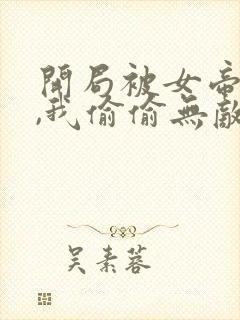 開局被女帝
,我偷偷無敵
吳素蓉